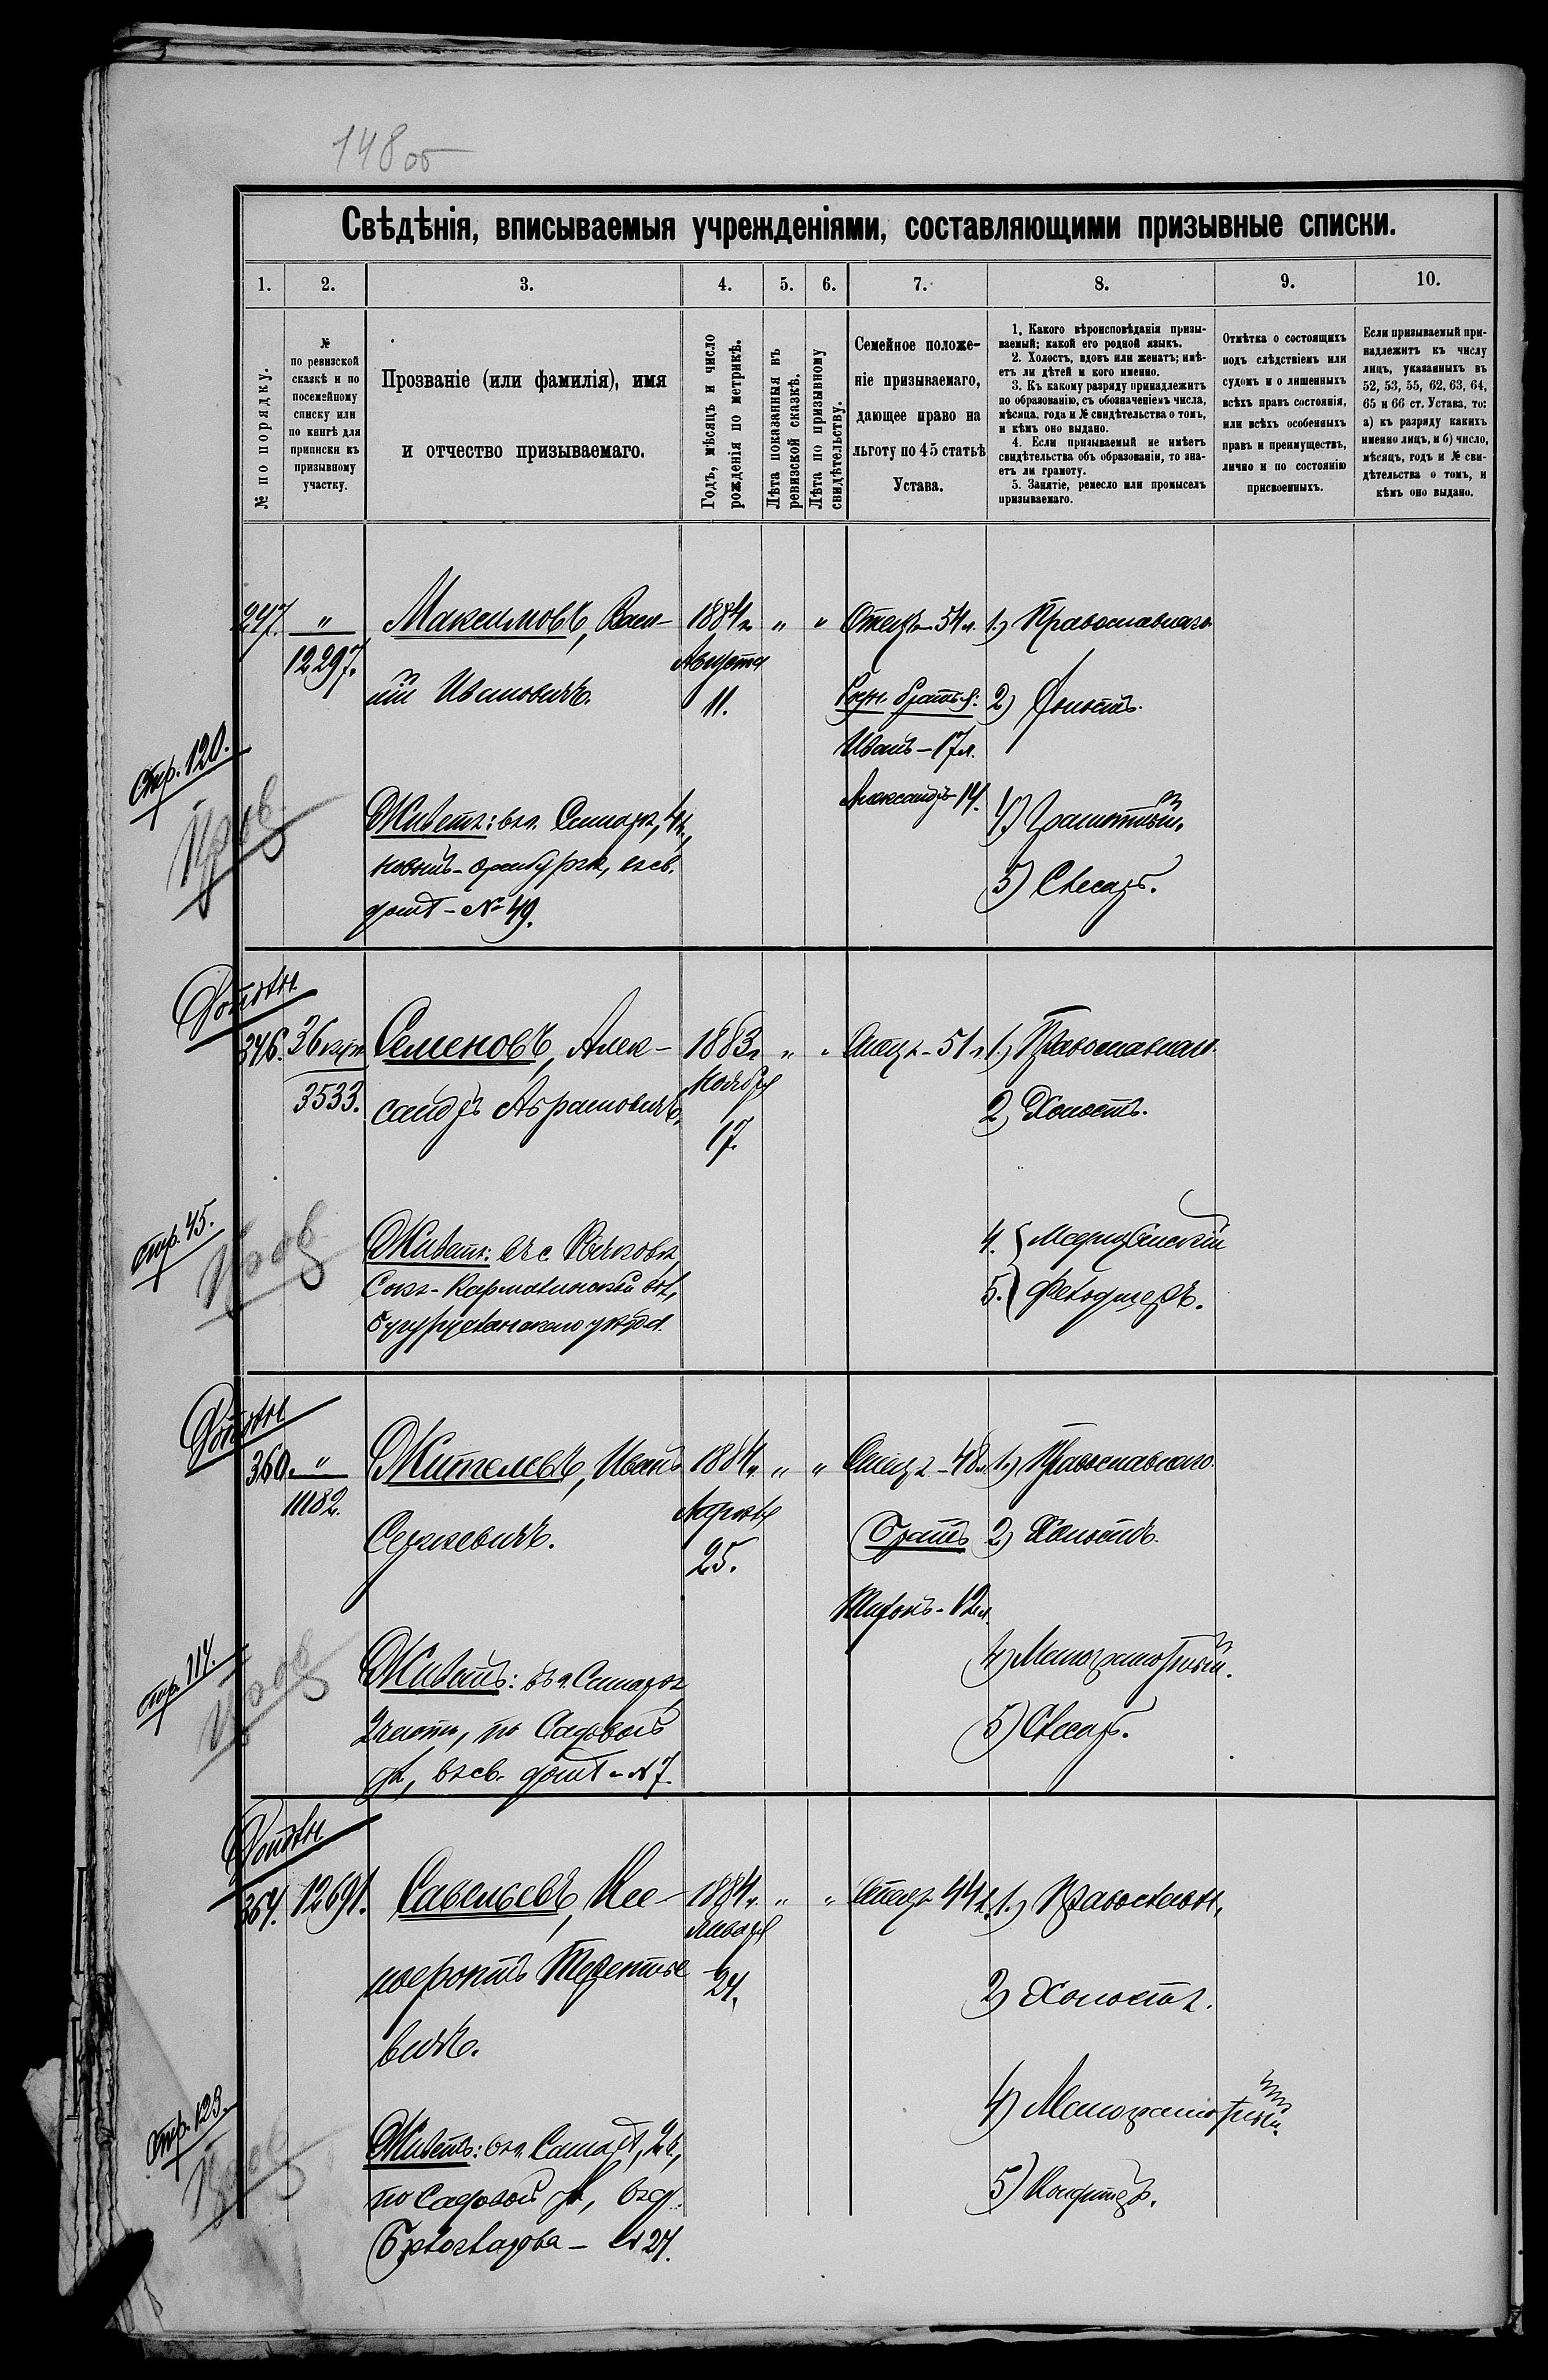 148 об
Свѣдѣнія, вписываемыя учрежденіями, составляющими призывные списки.
1. 2. 3. 4. 5. 6. 7. 8. 9. 10.
№ по порядку.
№
по ревизской
сказкѣ и по
посемейному
списку или
по книгѣ для
приписки къ
призывному
участку.
Прозваніе (или фамилія), имя
и отчество призываемаго.
Годъ, мѣсяцъ и число
рожденія по метрикѣ.
Лѣта показанныя въ
ревизской сказкѣ.
Лѣта по призывному
свидѣтельству.
Семейное положе-
ніе призываемаго,
дающее право на
льготу по 45 статьѣ
Устава.
1. Какого вѣроисповѣданія призы-
ваемый; какой его родной языкъ.
2. Холостъ, вдовъ или женатъ; имѣ-
етъ ли дѣтей и кого именно.
3. Къ какому разряду принадлежитъ
по образованію, съ обозначеніемъ числа,
мѣсяца, года и № свидѣтельства о томъ,
и кѣмъ оно выдано.
4. Если призываемый не имѣетъ
свидѣтельства объ образованіи, то зна-
етъ ли грамоту.
5. Занятіе, ремесло или промыселъ
призываемаго.
Отмѣтка о состоящихъ
подъ слѣдствіемъ или
судомъ и о лишенныхъ
всѣхъ правъ состоянія,
или всѣхъ особенныхъ
правъ и преимуществъ,
лично и по состоянію
присвоенныхъ.
Если призываемый при-
надлежитъ къ числу
лицъ, указанныхъ въ
52, 53, 55, 62, 63, 64,
65 и 66 ст. Устава, то:
а) къ разряду какихъ
именно лицъ, и б) число,
мѣсяцъ, годъ и № сви-
дѣтельства о томъ, и
кѣмъ оно выдано.
247. " Максимовъ, Васи- 1884 г. " " Отецъ-54 л. 1.) Православнаго.
12297. Августа
лій Ивановичъ. 11. Родн. братья: 2) Холостъ.
Иванъ-17 л.
Стр. 120. Александръ 14. 4) Грамотный.
Живетъ: въ г. Самарѣ, 4 ч.,
новый-оренбургъ, въ св. 5) Слесарь.
домѣ-№ 49.
346. 3533. Семеновъ, Алек- 1883 г. " " Отецъ-51 л. 1.) Православнаго.
Ноября
сандръ Абрамовичъ. 17. 2) Холостъ.
Стр. 45.
Живетъ: въ с. 4. Медицинскій
Сокъ-Кармалинской вол., 5. Фельдшеръ.
Бугурусланскаго уѣзда.
360. " Жителевъ, Иванъ 1884 г. " " Отецъ-48 л. 1.) Православнаго.
11182. Апрѣля
Сергѣевичъ. 25. Братъ 2) Холостъ.
Тихонъ-12 л.
Стр. 114. Живетъ: въ г. Самарѣ, 4) Малограмотный.
2 части, по Садовой 5) Слесарь.
ул., въ св. домѣ-№ 7.
364. 12691. Савельевъ, Кс- 1884 г. " " Отецъ 44 л. 1.) Православн.
Января
Терентье 24. 2) Холостъ.
вичъ.
Стр. 123. 4) Малограмотный.
Живетъ: въ г. Самарѣ, 2 ч.,
по Садовой ул., въ д. 5) Кондитеръ.
№ 24.